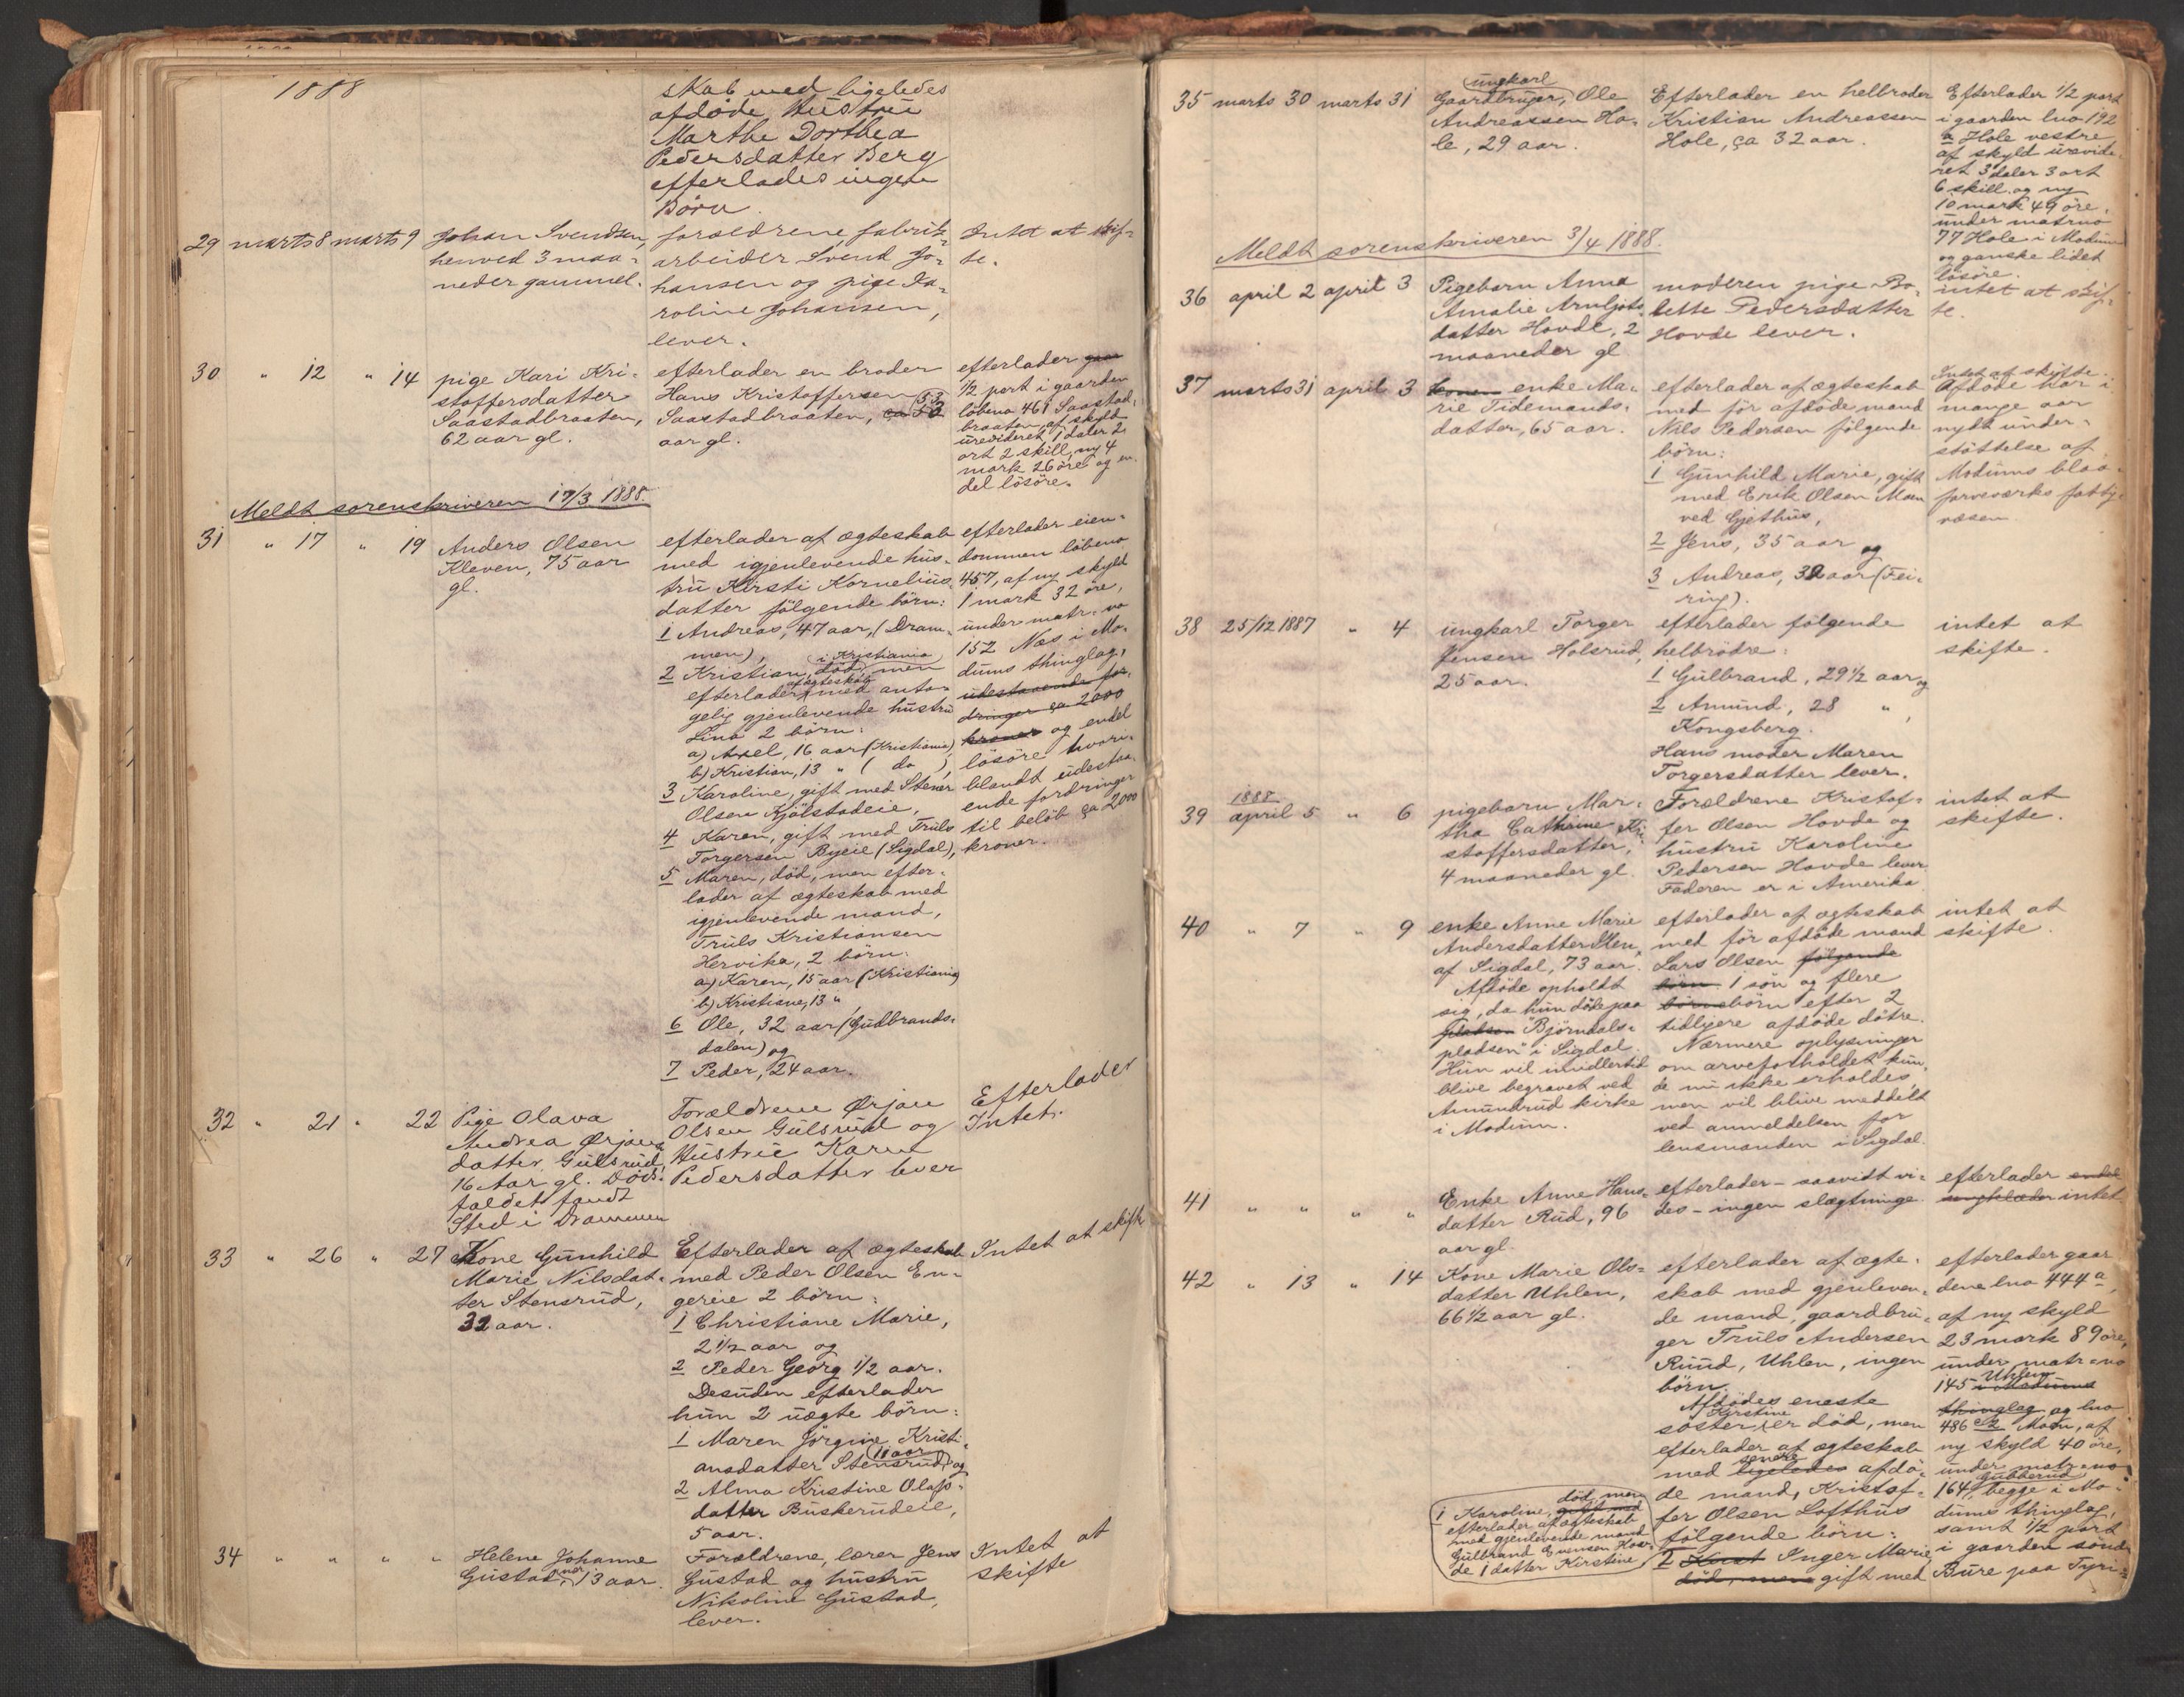 1888
skab med ligeledes
afdöde Hüstrü
Marthe Dorthea
Pedersdatter Berg
efterlades ingen
Börn.
29 marts 8 marts 9 Johan Svendsen,
henved 3 maa-
neder gammel.
forældrene fabrik-
arbeider Svend Jo-
hansen og pige Ka-
roline Johansen,
lever.
Intet at skif-
te.
30 " 12 " 14 pige Kari Kri-
stoffersdatter
Saastadbraaten,
62 aar gl.
efterlader en broder
Hans Kristoffersen
Saastadbraaten, 53
aar gl.
efterlader
1/2 part i gaarden
löbeno 461 Saastad-
braaten, af skyld
urevideret 1 daler 2
ort 2 skill, ny 4
mark 26 öre og en
del lösöre.
Meldt sorenskriveren 17/3 1888.
31 " 17 " 19 Anders Olsen
Kleven, 75 aar
gl.
efterlader af ægteskab
med igjenlevende hüs-
trü Kirsti Kornelius-
datter fölgende börn:
1 Andreas, 47 aar, (Dram-
men),
2 Kristian, i Kristiania död, men
efterlader af ægteskab med anta-
gelig gjenlevende hüstrü
Lina 2 börn:
a) Axel, 16 aar (Kristiania)
b) Kristian, 13 " ( do ),
3 Karoline, gift med Stener
Olsen Kjölstadeie,
4 Karen, gift med Trüls
Torgersen Byeie (Sigdal),
5 Maren, död, men efter-
lader af ægteskab med
igjenlevende mand,
Trüls Kristiansen
Hervika, 2 börn:
a) Karen, 15 aar (Kristiania)
b) Kristiane, 13 "
6 Ole, 32 aar (Güdbrands-
dalen) og
7 Peder, 24 aar.
efterlader eien-
dommen löbeno
457, af ny skyld
1 mark 32 öre,
ünder matr. no
152 Næs i Mo-
düms thinglag,
udestaaende for-
dringer ca 2000
kroner og endel
lösöre hvori-
blandt üdestaa-
ende fordringer
til belöb ca 2000
kroner.
32 " 21 " 22 Pige Olava
Andrea Ørjans
datter Gülsrüd,
16 Aar gl. Döds-
faldet fandt
Sted i Drammen
Forældrene Ørjan
Olsen Gülsrüd og
Hüstrü Karen
Pedersdatter lever
Efterlader
Intet.
33 " 26 " 27 Kone Günhild
Marie Nilsdat-
ter Stensrüd,
32 aar.
Efterlader af ægteskab
med Peder Olsen En-
gereie 2 börn:
1 Christiane Marie,
2 1/2 aar og
2 Peder Georg 1/2 aar.
Desüden efterlader
hün 2 üægte börn:
1 Maren Jörgine Kristi-
ansdatter Stensrüd, 11 aar og
2 Alma Kristine Olafs-
datter Büskerüdeie,
5 aar.
Intet at skifte
34 " " " " Helene Johanne
Güstad, 13 aar.
Forældrene, lærer Jens
Güstad og hüstrü
Nikoline Güstad,
lever.
Intet at
skifte
35 marts 30 marts 31 ungkarl
Gaardbrüger, Ole
Andreassen Ho-
le, 29 aar.
Efterlader en helbroder
Kristian Andreassen
Hole, ca 32 aar.
Efterlader 1/2 part
i gaarden lno 192
a Hole vestre
af skyld urevide-
ret 3 daler 3 ort
6 skill. og ny
10 mark 49 öre,
ünder matrno
77 Hole i Modüm
og ganske lidet
lösöre.
Meldt sorenskriveren 3/4 1888.
36 april 2 april 3 Pigebarn Anna
Amalie Arnljots-
datter Hovde, 2
maaneder gl
moderen pige Bo-
lette Pedersdatter
Hovde lever.
intet at skif-
te.
37 marts 31 april 3 konen enke Ma-
rie Tidemands-
datter, 65 aar.
efterlader af ægteskab
med för afdöde mand
Nils Pedersen fölgende
börn:
1 Günhild Marie, gift
med Erik Olsen Moen
ved Gjethüs,
2 Jens, 35 aar og
3 Andreas, 32 aar (Fei-
ring).
Intet at skifte.
Afdöde har i
mange aar
nydt ünder-
stöttelse af
Modüms blaa-
farveværks fattig-
væsen
38 25/12 1887 " 4 üngkarl Torger
Jensen Holsrüd,
25 aar.
efterlader fölgende
helbrödre:
1 Gülbrand, 29 1/2 aar og
2 Amünd, 28 " ,
Kongsberg.
Hans moder Maren
Torgersdatter lever.
intet at
skifte.
39 1888
april 5 " 6 pigebarn Mar-
tha Cathrine Kri
stoffersdatter,
4 maaneder gl.
Forældrene Kristof-
fer Olsen Hovde og
hüstrü Karoline
Pedersen Hovde lever.
Faderen er i Amerika.
intet at
skifte.
40 " 7 " 9 enke Anne Marie
Andersdatter Men,
af Sigdal, 73 aar.
Afdöde opholdt
sig, da hün döde paa
pladsen "Björndals-
pladsen" i Sigdal.
Hün vil imidlertid
blive begravet ved
Amündrüd kirke
i Modüm.
efterlader af ægteskab
med för afdöde mand
Lars Olsen fölgende
börn 1 sön og flere
börnebörn efter 2
tidligere afdöde dötre.
Nærmere oplysninger
om arveforholdet kün-
de nü ikke erholdes,
men vil blive meddelt
ved anmeldelsen for
lensmanden i Sigdal.
intet at
skifte.
41 " " " " Enke Anne Hans-
datter Rüd, 96
aar gl.
efterlader - saavidt vi-
des - ingen slægtninge.
efterlader endel
intet
42 " 13 " 14 Kone Marie Ols-
datter Uhlen,
66 1/2 aar gl.
efterlader af ægte-
skab med gjenleven-
de mand, gaardbrü-
ger Trüls Andersen
Rüüd, Uhlen, ingen
börn.
Afdödes eneste
söster Kirstine er död, men
efterlader af ægteskab
med ligeledes senere afdö-
de mand, Kristof-
fer Olsen Lofthüs
fölgende börn:
1 Karoline, gift med död, men
efterlader af ægteskab
med gjenlevende mand
Gülbrand Evensen Hov-
de 1 datter Kirstine
2 Inger Marie,
död, men gift med
efterlader gaar
dene lno 444 a,
af ny skyld
23 mark 89 öre,
ünder matr=no
145 Uhlen i Modüms
thinglag og lno
486 Moen, af
ny skyld 40 öre,
ünder matr=no
164, Gubberud begge i Mo-
düms thinglag,
samt 1/2 part
i gaarden söndre
Büre paa Tyri-